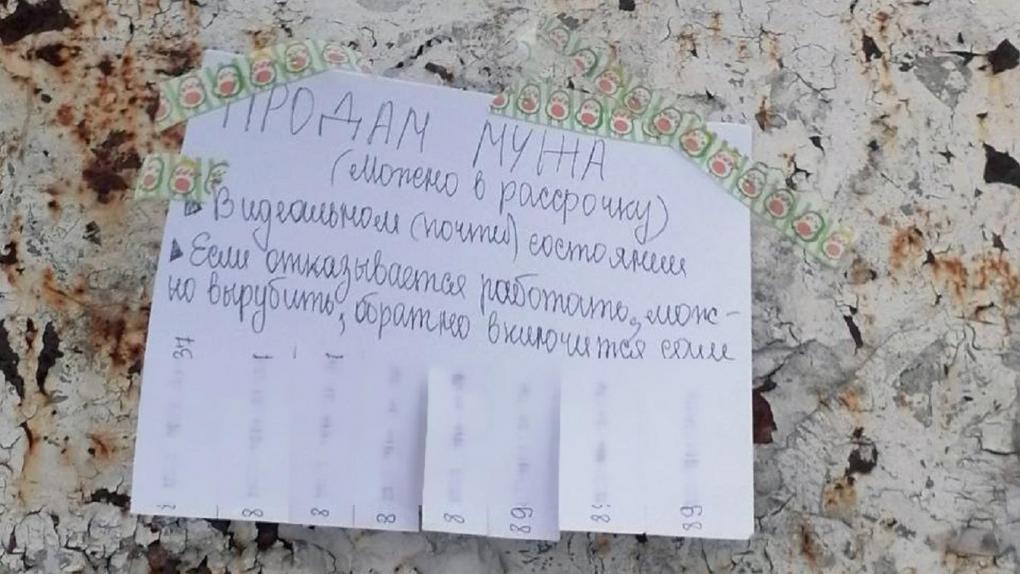 ПРОДАМ МУЖА
(Можно в рассрочку)
В идеальном (почти) состоянии
Если отказывается работать, мож-
но вырубить, обратно включится сам
37
8
8
8
8
89
89
89